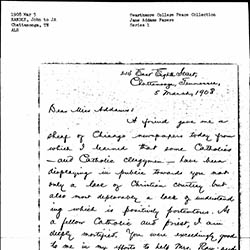 1908 Mar 5
to JA
Chattanooga, TN
ALS
Swarthmore College Peace Collection
Jane Addams Papers
Series 1
East Eighth Street,
Chattanooga, Tennessee,
5 March, 1908
Dear Miss Addams:
A friend gave me a
sheaf of Chicago newspapers today from
which I learned that some Catholics
— and Catholic clergymen — have been
displaying in public towards you not
only a lack of Christian courtesy but
also most deplorably a lack of understand
ing which is positively portentous. As
a fellow Catholic and priest, I am
deeply mortified. You were exceedingly good
to me in my efforts to help Mrs.